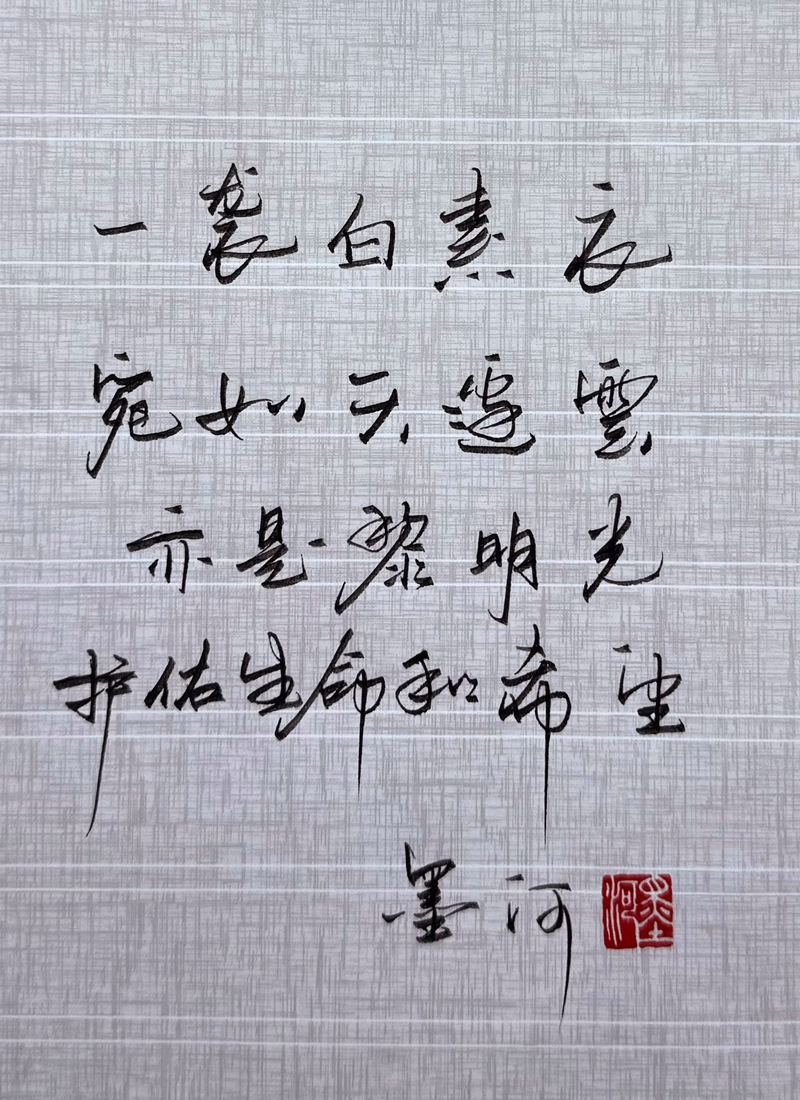 一袭白素衣
宛如天边雲
亦是黎明光
护佑生命和希望
墨河
墨河